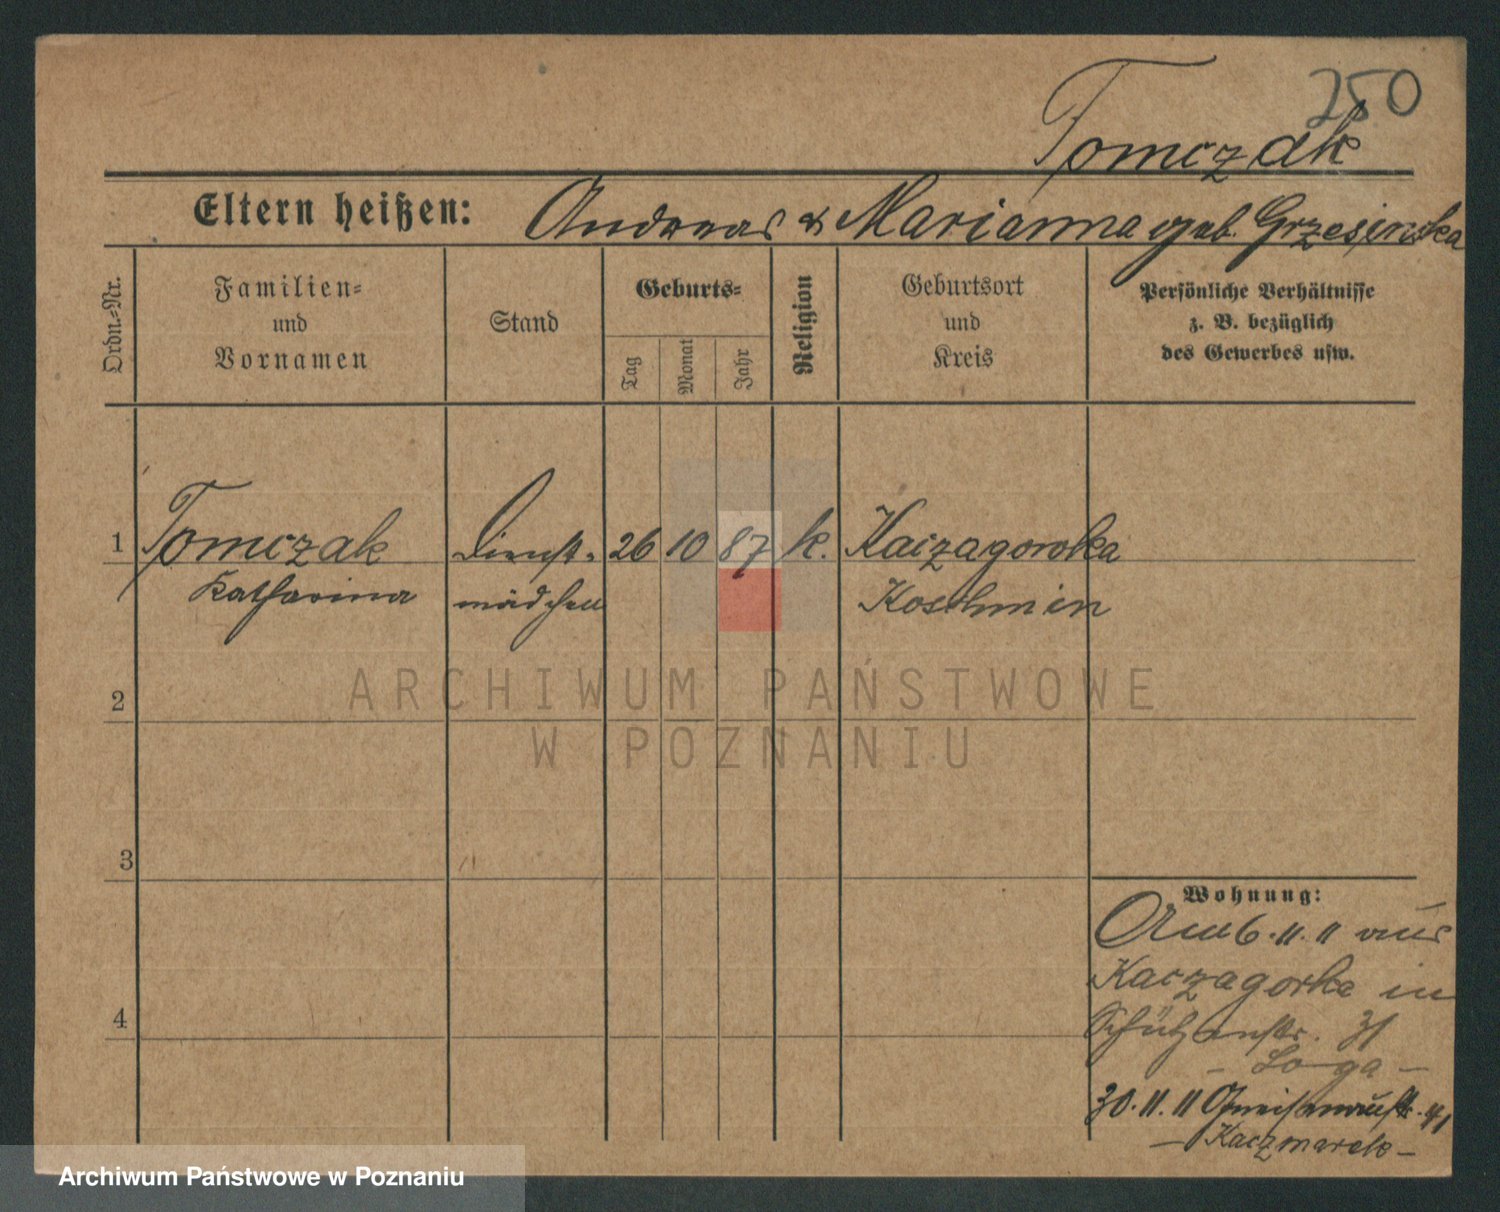 250
Tomczak
Eltern heißen: Andreas & Marianna geb. Grzesinska
Ordn.-Nr.
Familien-
und
Vornamen
Stand
Geburts-
Tag
Monat
Jahr
Religion
Geburtsort
und
Kreis
Persönliche Verhältnisse
z. B. bezüglich
des Gewerbes usw.
1 Tomczak Dienst- 26 10 87 k. Kaczagorka
Katharina mädchen Koschmin
2
3
4
Wohnung:
6.11.11 aus
Kaczagorka in
Schützenstr. 31
- Loga -
30.11.11 Gneisenaustr. 41
- Kaczmarek -
ARCHIWUM PAŃSTWOWE
W POZNANIU
Archiwum Państwowe w Poznaniu